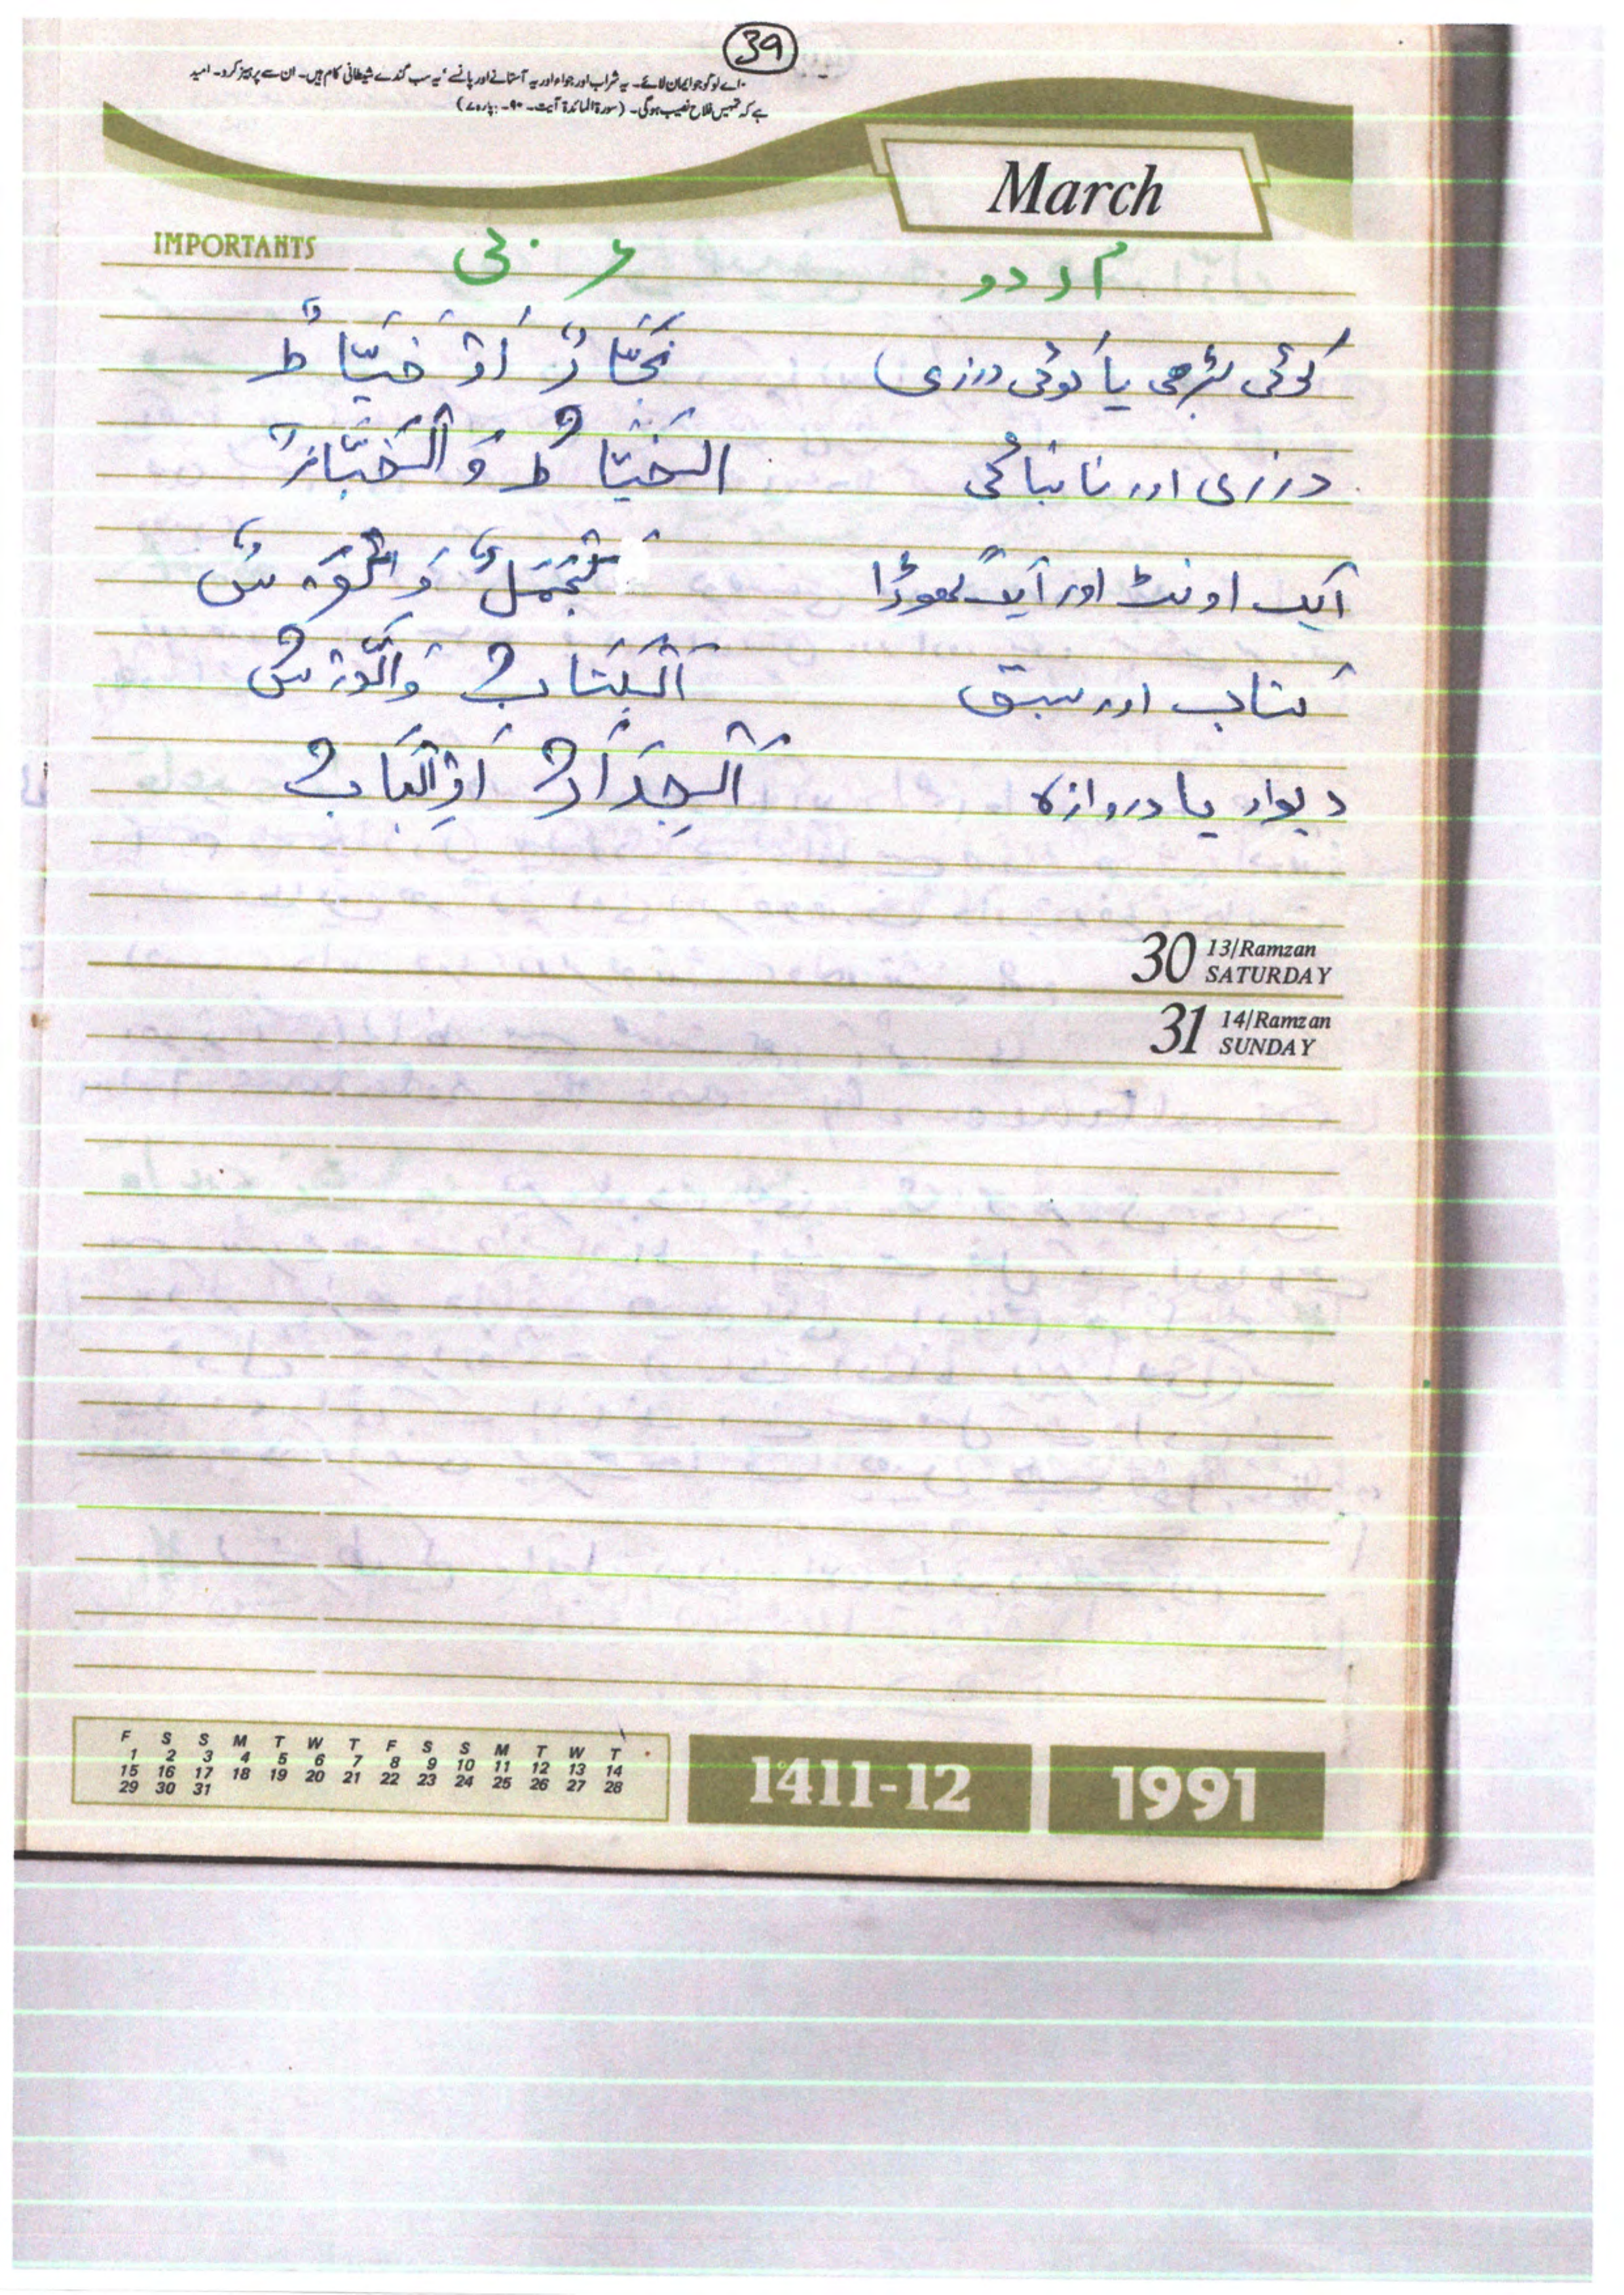 39
اے لوگو جو ایمان لائے۔ یہ شراب اور جوا اور یہ آستانے اور پانسے' یہ سب گندے شیطانی کام ہیں۔ ان سے پرہیز کرو۔ امید
ہے کہ تمہیں فلاح نصیب ہوگی۔ (سورۃ المائدۃ آیت۔ ۹۰۔ پارہ ۷)
March
IMPORTANTS
اُردو عربی
کوئی بڑھی یا کوئی درزی) نَجَّارٌ اَوْ خَيَّاطٌ
درزی اور نانبائی الْخَيَّاطُ وَالْخَبَّازُ
ایک اونٹ اور ایک گھوڑا جَمَلٌ وَ
کتاب اور سبق اَلْكِتَابُ وَالدَّرْسُ
دیوار یا دروازہ اَلْجِدَارُ اَوِالْبَابُ
30 13/Ramzan SATURDAY
31 14/Ramzan SUNDAY
F S S M T W T F S S M T W T
1 2 3 4 5 6 7 8 9 10 11 12 13 14
15 16 17 18 19 20 21 22 23 24 25 26 27 28
29 30 31
1411-12 1991